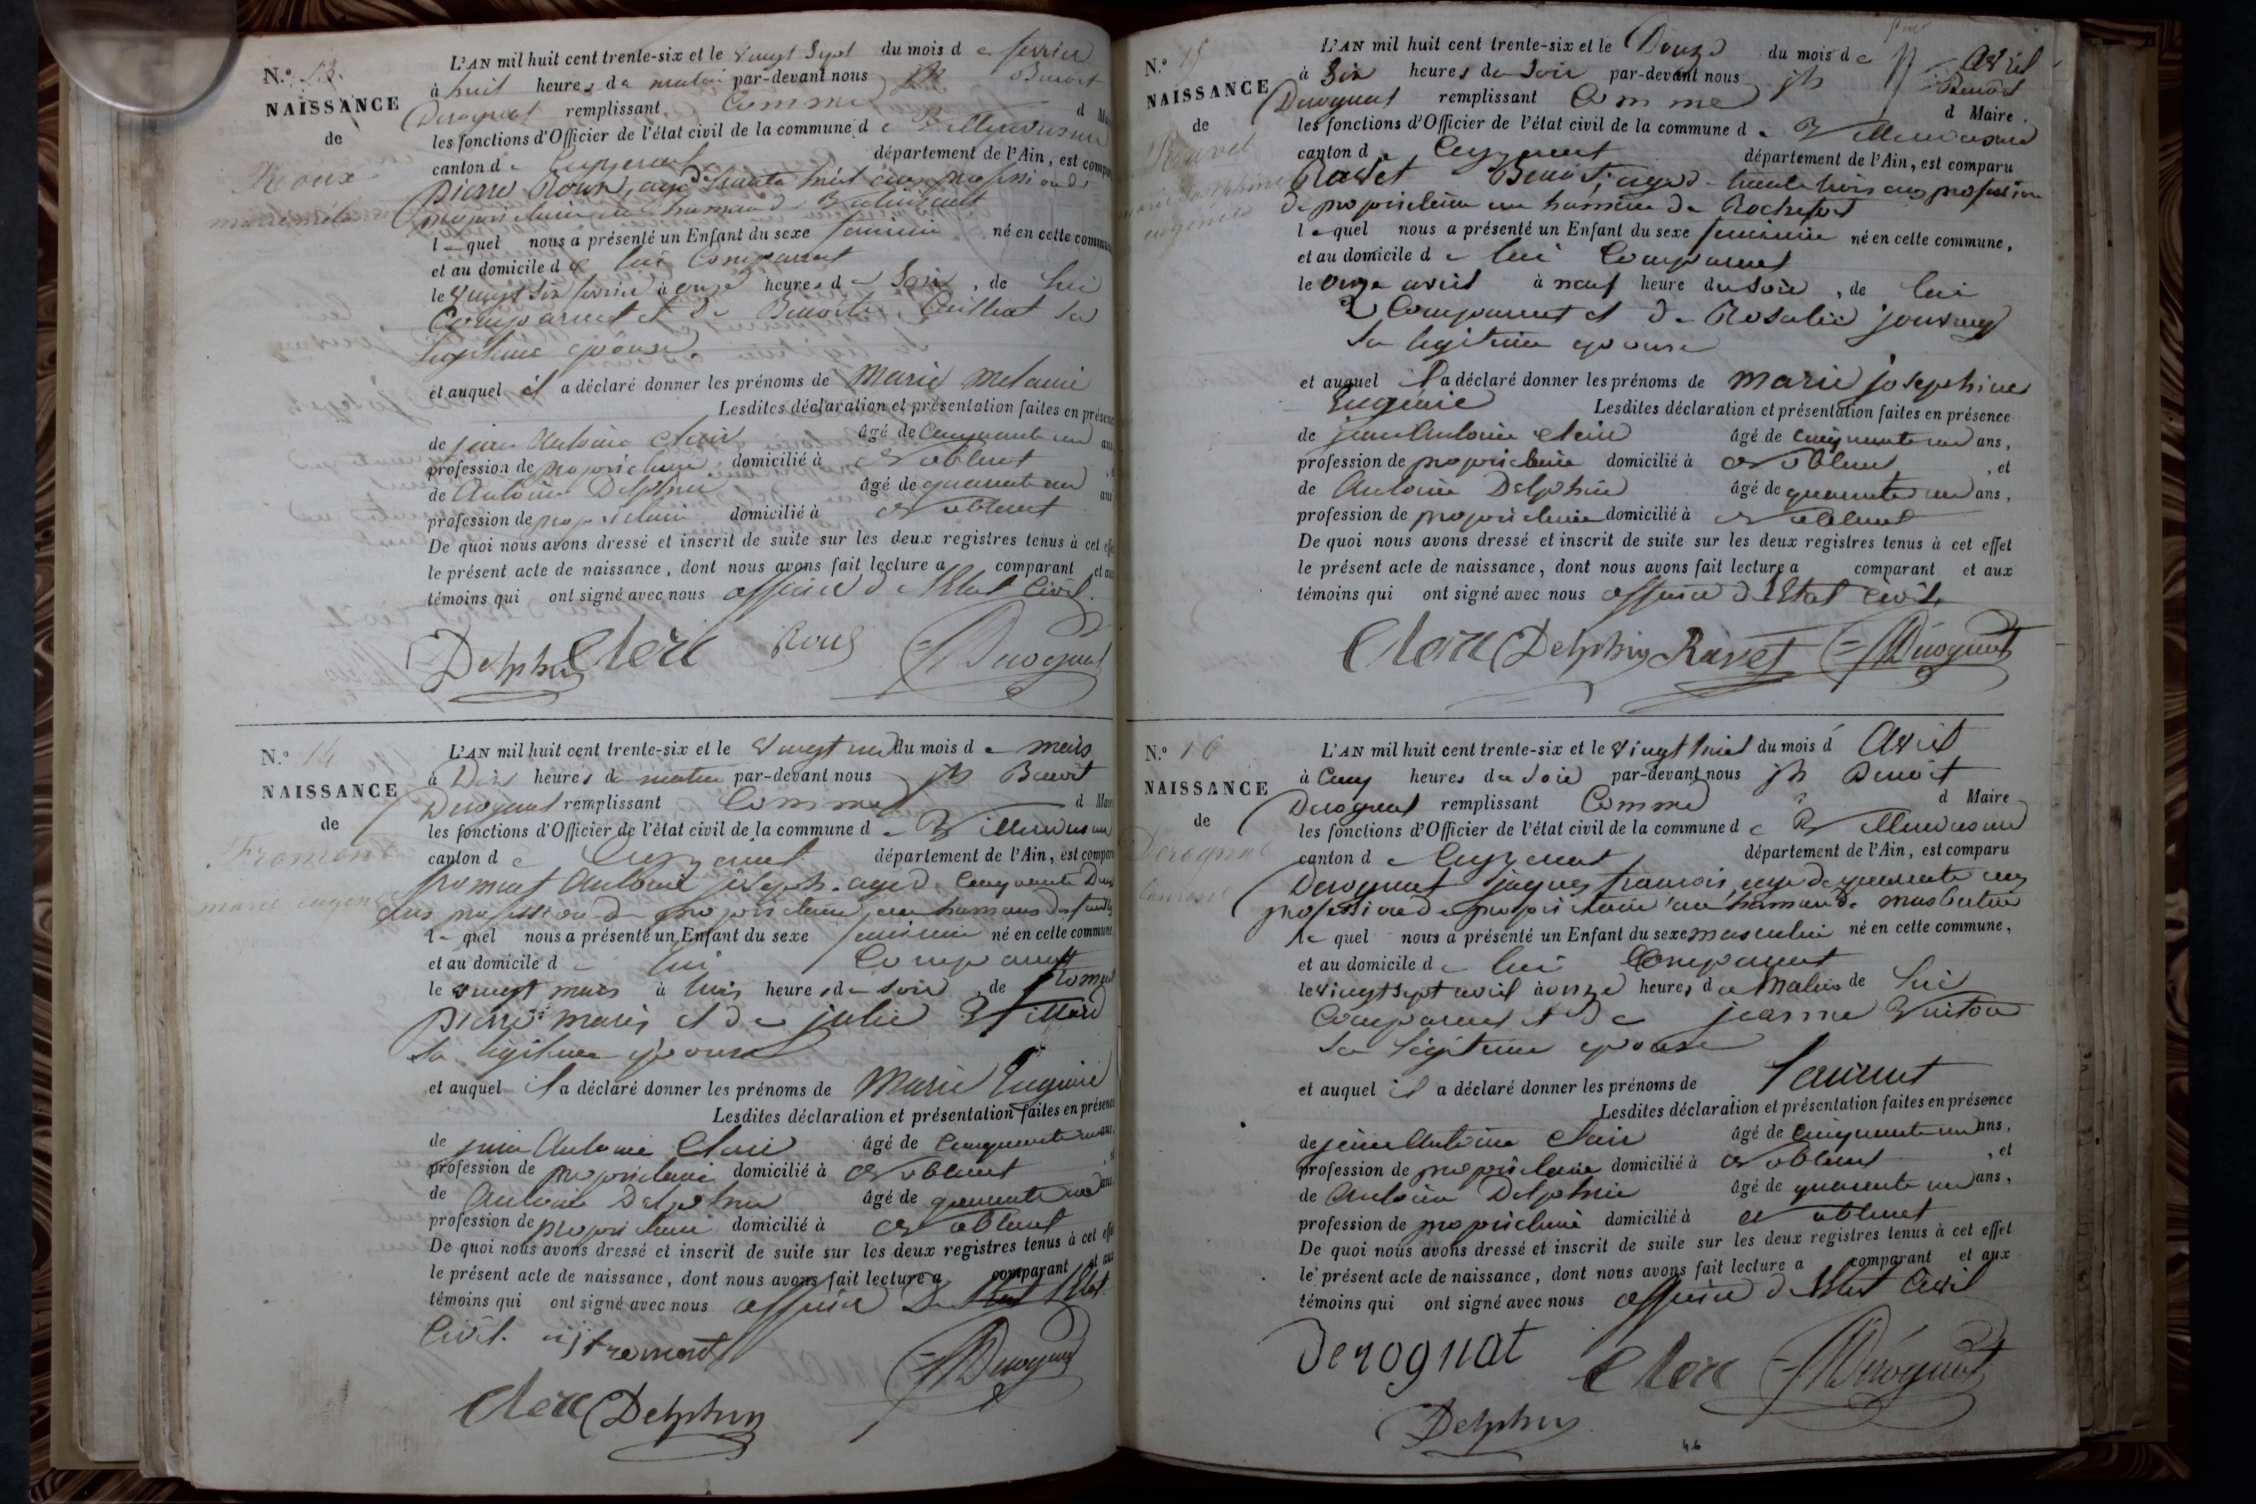 N.º 13.
NAISSANCE
de
Roux
marie mélanie
L'AN mil huit cent trente-six et le vingt Sept du mois de fevrier
à huit heures du matin par-devant nous jh Benoit
Derognat remplissant Comme d Maire
les fonctions d'Officier de l'état civil de la commune de Villereversure
canton de Ceyzeriat département de l'Ain, est comparu
Pierre Roux, agé de trente huit ans profession de
proprietaire au hameau de
lequel nous a présenté un Enfant du sexe feminin né en cette commune
et au domicile de lui Comparant
le vingt six fevrier à onze heures du Soir, de lui
Comparant et de Benoite Cuillerat Sa
legitime epouse.
et auquel il a déclaré donner les prénoms de Marie Melanie
Lesdites déclaration et présentation faites en présence
de jean Antoine Clerc âgé de Cinquante un ans
profession de proprietaire domicilié à
de Antoine Delphin âgé de quarante un ans
profession de proprietaire domicilié à
De quoi nous avons dressé et inscrit de suite sur les deux registres tenus à cet effet
le présent acte de naissance, dont nous avons fait lecture a comparant et aux
témoins qui ont signé avec nous officier de l'Etat Civil.
Delphin Clerc Roux Derognat
N.º 14
NAISSANCE
de
Fromont
marie eugenie
L'AN mil huit cent trente-six et le vingt un du mois de mars
à Dix heures du matin par-devant nous jh Benoit
Derognat remplissant Comme d Maire
les fonctions d'Officier de l'état civil de la commune de Villereversure
canton de Ceyzeriat département de l'Ain, est comparu
fromont Antoine joseph agé de Cinquante Deux
ans profession de proprietaire, au hameau
lequel nous a présenté un Enfant du sexe feminin né en cette commune
et au domicile de lui Comparant
le vingt mars à trois heures du soir, de fromont
Pierre marie et de julie
sa legitime epouse
et auquel il a déclaré donner les prénoms de Marie Eugenie
Lesdites déclaration et présentation faites en présence
de jean Antoine Clerc âgé de Cinquante un ans,
profession de proprietaire domicilié à
de Antoine Delphin âgé de quarante un ans
profession de proprietaire domicilié à
De quoi nous avons dressé et inscrit de suite sur les deux registres tenus à cet effet
le présent acte de naissance, dont nous avons fait lecture a comparant et aux
témoins qui ont signé avec nous officier De l'Etat
Civil. fromont Derognat
Clerc Delphin
N.º 15
NAISSANCE
de
Ravet
marie Josephine
eugénie
L'AN mil huit cent trente-six et le Douze du mois de avril
à Six heures du Soir par-devant nous jh Benoit
Derognat remplissant Comme d Maire
les fonctions d'Officier de l'état civil de la commune de Villereversure
canton de Ceyzeriat département de l'Ain, est comparu
Ravet Benoit, agé de trente trois ans profession
de proprietaire au hameau de Rochefort
lequel nous a présenté un Enfant du sexe feminin né en cette commune,
et au domicile de lui Comparant
le onze avril à neuf heure du soir, de lui
Comparant et de Rosalie
sa legitime epouse
et auquel il a déclaré donner les prénoms de marie josephine
Eugenie Lesdites déclaration et présentation faites en présence
de jean Antoine Clerc âgé de cinquante un ans,
profession de proprietaire domicilié à , et
de Antoine Delphin âgé de quarante un ans,
profession de proprietaire domicilié à
De quoi nous avons dressé et inscrit de suite sur les deux registres tenus à cet effet
le présent acte de naissance, dont nous avons fait lecture a comparant et aux
témoins qui ont signé avec nous officier de l'Etat Civil,
Clerc Delphin Ravet Derognat
N.º 16
NAISSANCE
de
Derognat
Laurent
L'AN mil huit cent trente-six et le vingt huit du mois d Avril
à Cinq heures du Soir par-devant nous jh Benoit
Derognat remplissant Comme d Maire
les fonctions d'Officier de l'état civil de la commune de Villereversure
canton de Ceyzeriat département de l'Ain, est comparu
Derognat jaques francois, agé de quarante ans
profession de proprietaire au hameau de
lequel nous a présenté un Enfant du sexe masculin né en cette commune,
et au domicile de lui Comparant
le vingt sept avril à onze heures du Matin de lui
Comparant et de jeanne
Sa legitime epouse
et auquel il a déclaré donner les prénoms de Laurent
Lesdites déclaration et présentation faites en présence
de jean Antoine Clerc âgé de cinquante un ans,
profession de proprietaire domicilié à , et
de Antoine Delphin âgé de quarante un ans,
profession de proprietaire domicilié à
De quoi nous avons dressé et inscrit de suite sur les deux registres tenus à cet effet
le présent acte de naissance, dont nous avons fait lecture a comparant et aux
témoins qui ont signé avec nous officier de l'Etat Civil
Derognat Clerc Derognat
Delphin
46